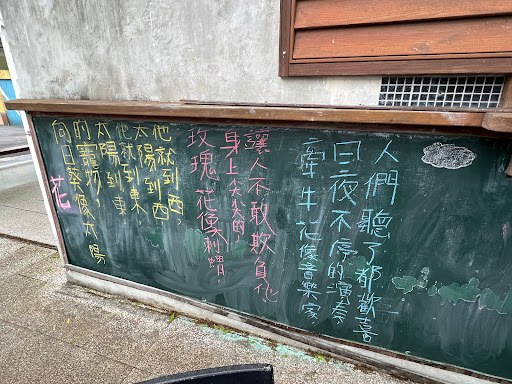 花
向日葵像太陽
的寵物,
太陽到東
他就到東
太陽到西
他就到西,
玫瑰花像刺蝟,
身上尖尖的,
讓人不敢欺負他
牽牛花像音樂家,
日夜不停的演奏,
人們聽了都歡喜